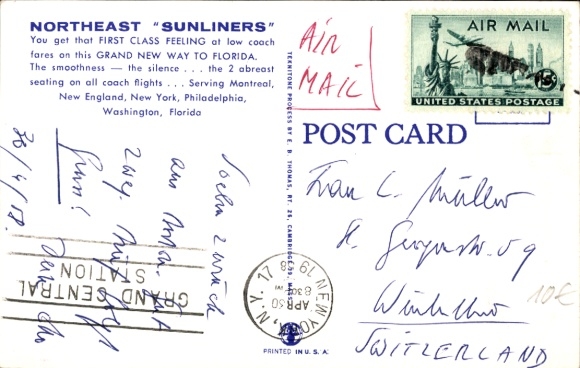 NORTHEAST "SUNLINERS"
You get that FIRST CLASS FEELING at low coach
fares on this GRAND NEW WAY TO FLORIDA.
The smoothness — the silence . . . the 2 abreast
seating on all coach flights . . . Serving Montreal,
New England, New York, Philadelphia,
Washington, Florida
AIR
MAIL
AIR MAIL
15¢
UNITED STATES POSTAGE
POST CARD
TEKNITONE PROCESS BY E. B. THOMAS, RT. 28, CAMBRIDGE 39, MASS.
Soeben zurück
aus
Gruss!
30/4/58.
Frau C. Müller
St. Georgenstr. 59
Winterthur
SWITZERLAND
10€
GRAND CENTRAL
STATION
NEW YORK, N.Y. 17
APR 30
6 30 PM
1958
PRINTED IN U. S. A.